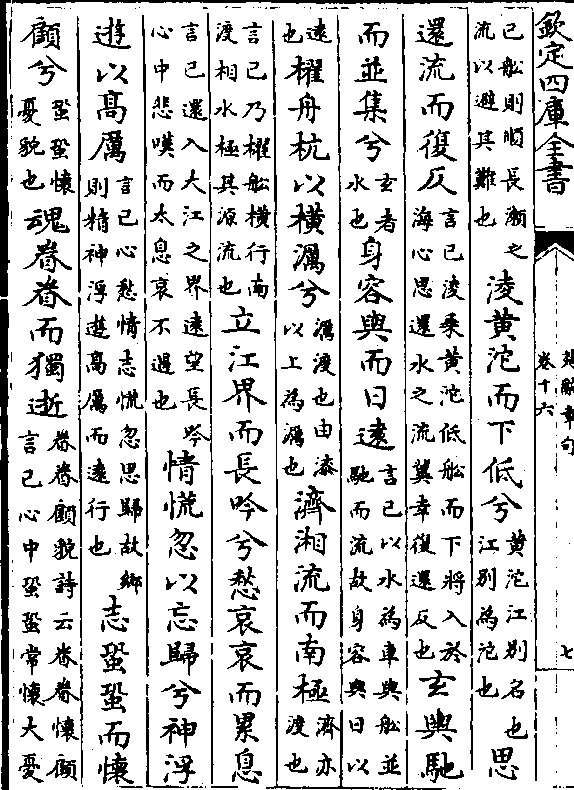 欽定四庫全書
楚辭章句
卷十六
七
已船則順長瀨之流以避其難也淩黃沱而下低兮黃沱江別名也江別為沱也思
還流而復反言已淩乗黃沱低船而下將入於海心思還水之流冀幸復還反也玄輿馳
而並集兮玄者水也身容與而日逺言已以水為車與船並馳而流故身容與日以
逺也櫂舟杭以橫濿兮濿渡也由漆以上為濿也濟湘流而南極濟亦渡也
言已乃櫂船橫行南渡相水極其源流也立江界而長吟兮愁哀哀而累息
言已還入大江之界逺望長吟心中悲嘆而太息哀不遇也情慌忽以忘歸兮神浮
遊以髙厲言已心愁情志慌忽思歸故鄉則精神浮遊髙厲而逺行也志蛩蛩而懷
顧兮蛩蛩懷憂貌也魂眷眷而獨逝眷眷顧貌詩云眷眷懷顧言已心中蛩蛩常懷大憂